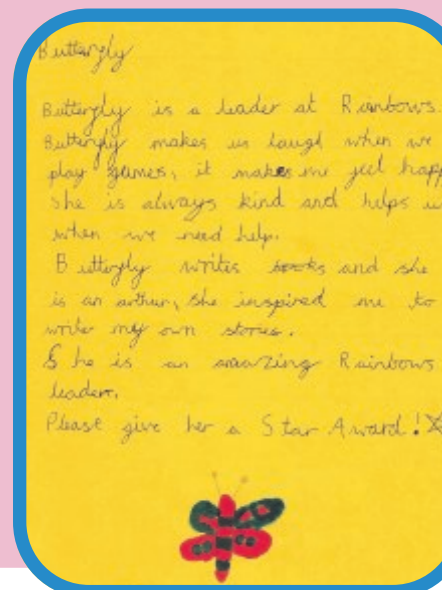 Butterfly
Butterfly is a leader at Rainbows
Butterfly makes us laugh when we
play games, it makes me feel happ
She is always kind and helps u
when we need help.
Butterfly writes books and she
is an arthur, she inspired me to
write my own stories.
She is an amazing Rainbows
leader.
Please give her a Star Award!